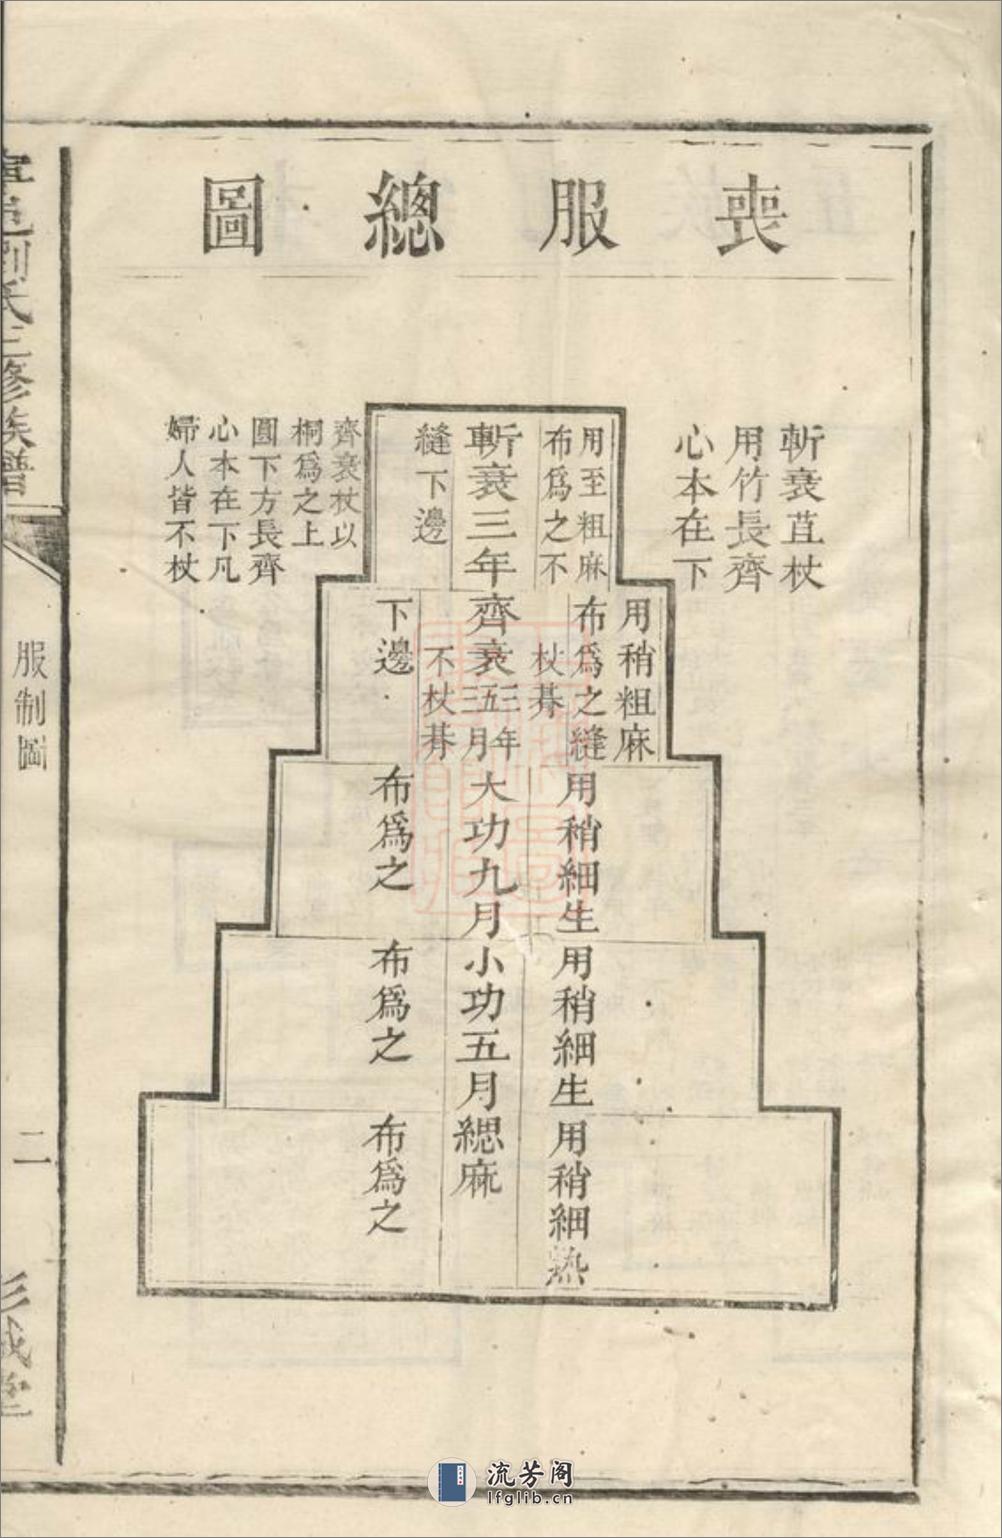 喪服總圖
斬衰苴杖
用竹長齊
心本在下
用至粗麻
布爲之不
斬衰三年
縫下邊
用稍粗麻
布爲之縫
杖朞
齊衰五三年
三月
不杖朞
下邊
用稍細生
大功九月
布爲之
用稍細生
小功五月
布爲之
用稍細熟
緦麻
布爲之
齊衰杖以
桐爲之上
圓下方長齊
心本在下凡
婦人皆不杖
邑劉氏三修族譜
服制圖
二
彭城堂
流芳阁
lfglib.cn